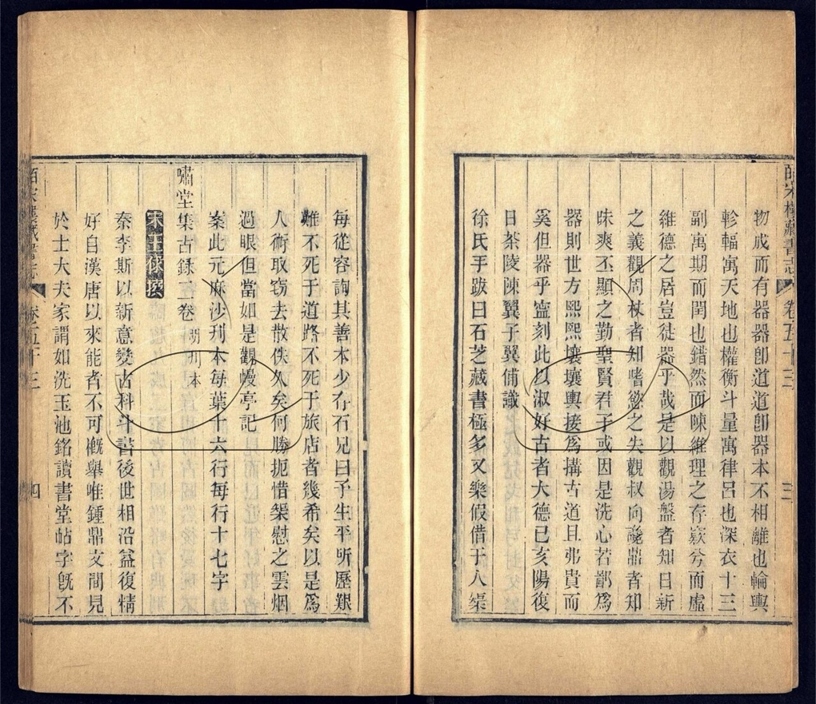 物成而有器器卽道道卽器本不相離也輪輿
軫輻寓天地也權衡斗量寓律呂也深衣十三
副寓期而閏也錯然而陳維理之存寂兮而虛
維德之居豈徒器乎哉是以觀湯盤者知日新
之義觀周杖者知嗜慾之失觀叔向鼎者知
昧爽丕顯之勤聖賢君子或因是洗心若鄙爲
器則世方熙熙壤壤輿接爲搆古道且弗貴而
奚但器乎寔刻此以淑好古者大德己亥陽復
日茶陵陳翼子翼俌識
徐氏手跋曰石芝藏書極多又樂假借于人榘
皕宋樓藏書志 卷五十三 三
每從容詢其善本少存石兄曰予生平所歷艱
難不死于道路不死于旅店者幾希矣以是爲
人衖取窃去散佚久矣何勝扼惜榘慰之雲烟
過眼但當如是觀幔亭記
案此元麻沙刋本每葉十六行每行十七字
嘯堂集古錄二卷 明刋本
宋王俅撰
秦李斯以新意變古科斗書後世相沿益復精
好自漢唐以來能者不可槪舉唯鍾鼎文間見
於士大夫家謂如洗玉池銘讀書堂帖字旣不
皕宋樓藏書志 卷五十三 四